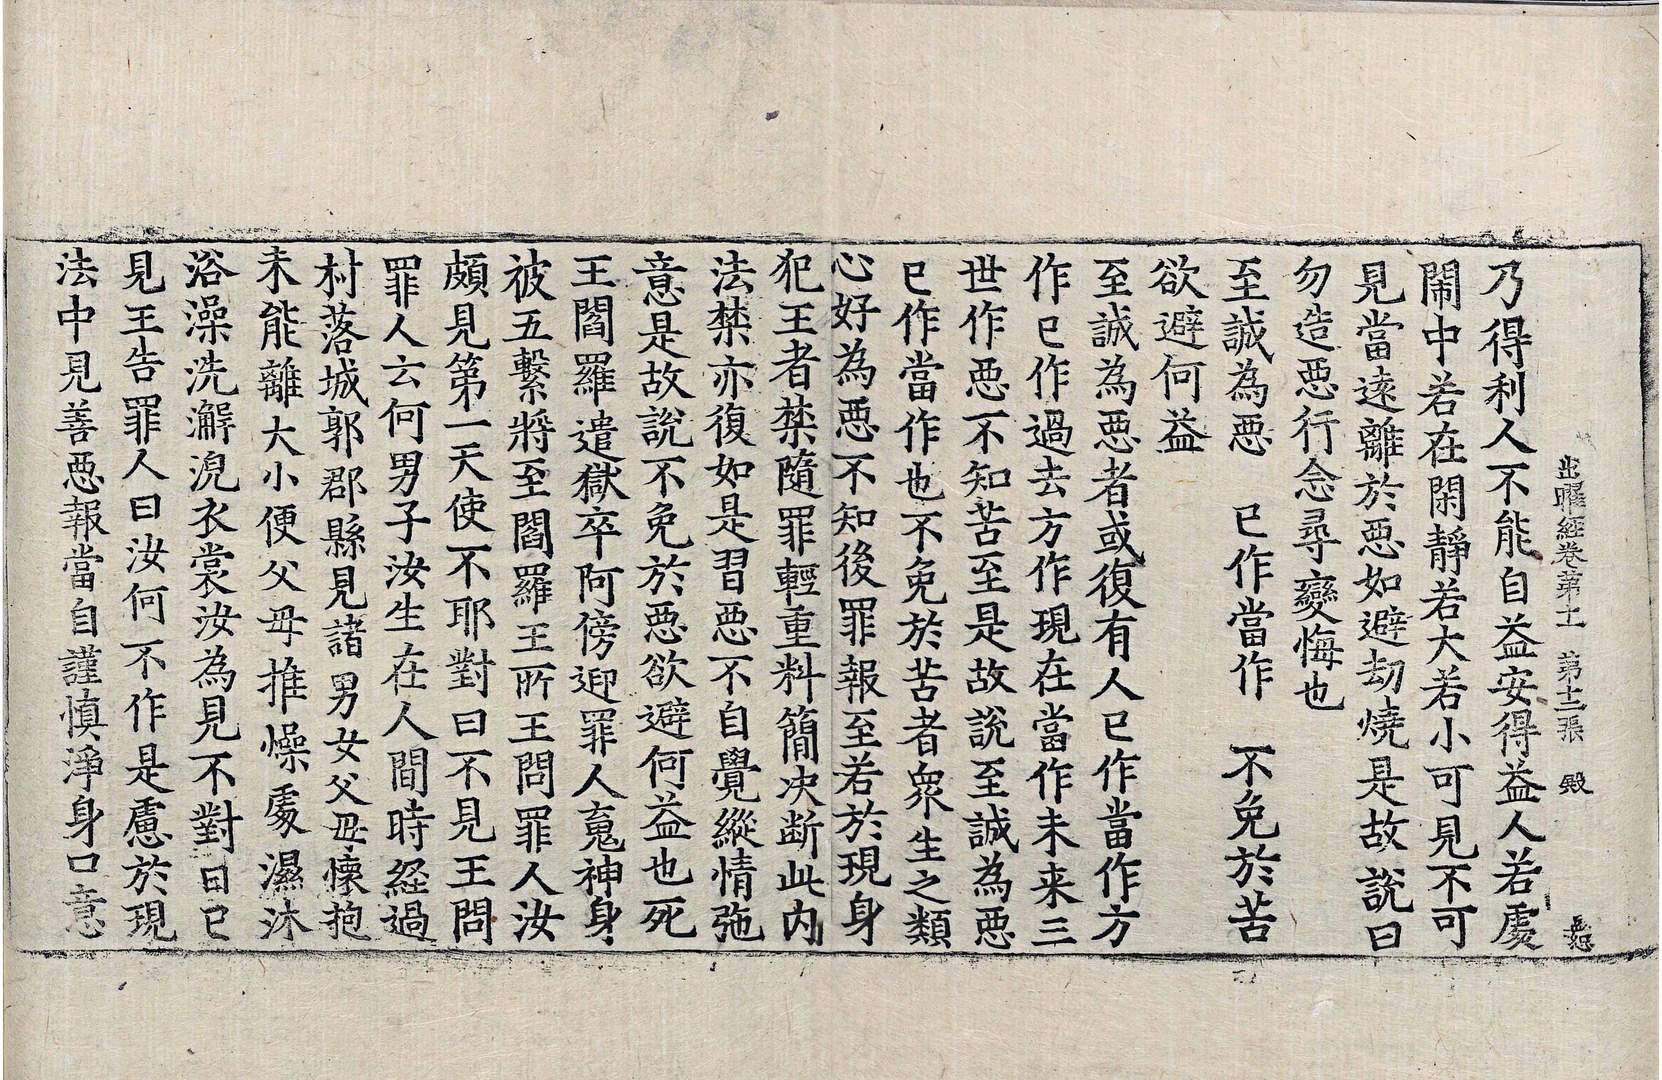 出曜經卷第十一 第十二張 殿
乃得利人不能自益安得益人若處
閙中若在閑靜若大若小可見不可
見當遠離於惡如避劫燒是故說曰
勿造惡行念尋變悔也
至誠為惡 已作當作 不免於苦
欲避何益
至誠為惡者或復有人已作當作方
作已作過去方作現在當作未来三
世作惡不知苦至是故說至誠為惡
已作當作也不免於苦者衆生之類
心好為惡不知後罪報至若於現身
犯王者禁隨罪輕重料簡决断此内
法禁亦復如是習惡不自覺縱情弛
意是故說不免於惡欲避何益也死
王閻羅遣獄卒阿傍迎罪人䰟神身
被五繫將至閻羅王所王問罪人汝
頗見第一天使不耶對曰不見王問
罪人云何男子汝生在人間時経過
村落城郭郡縣見諸男女父母懷抱
未能離大小便父母推燥處濕沐
浴澡洗澣浣衣裳汝為見不對曰已
見王告罪人曰汝何不作是慮於現
法中見善惡報當自謹慎淨身口意